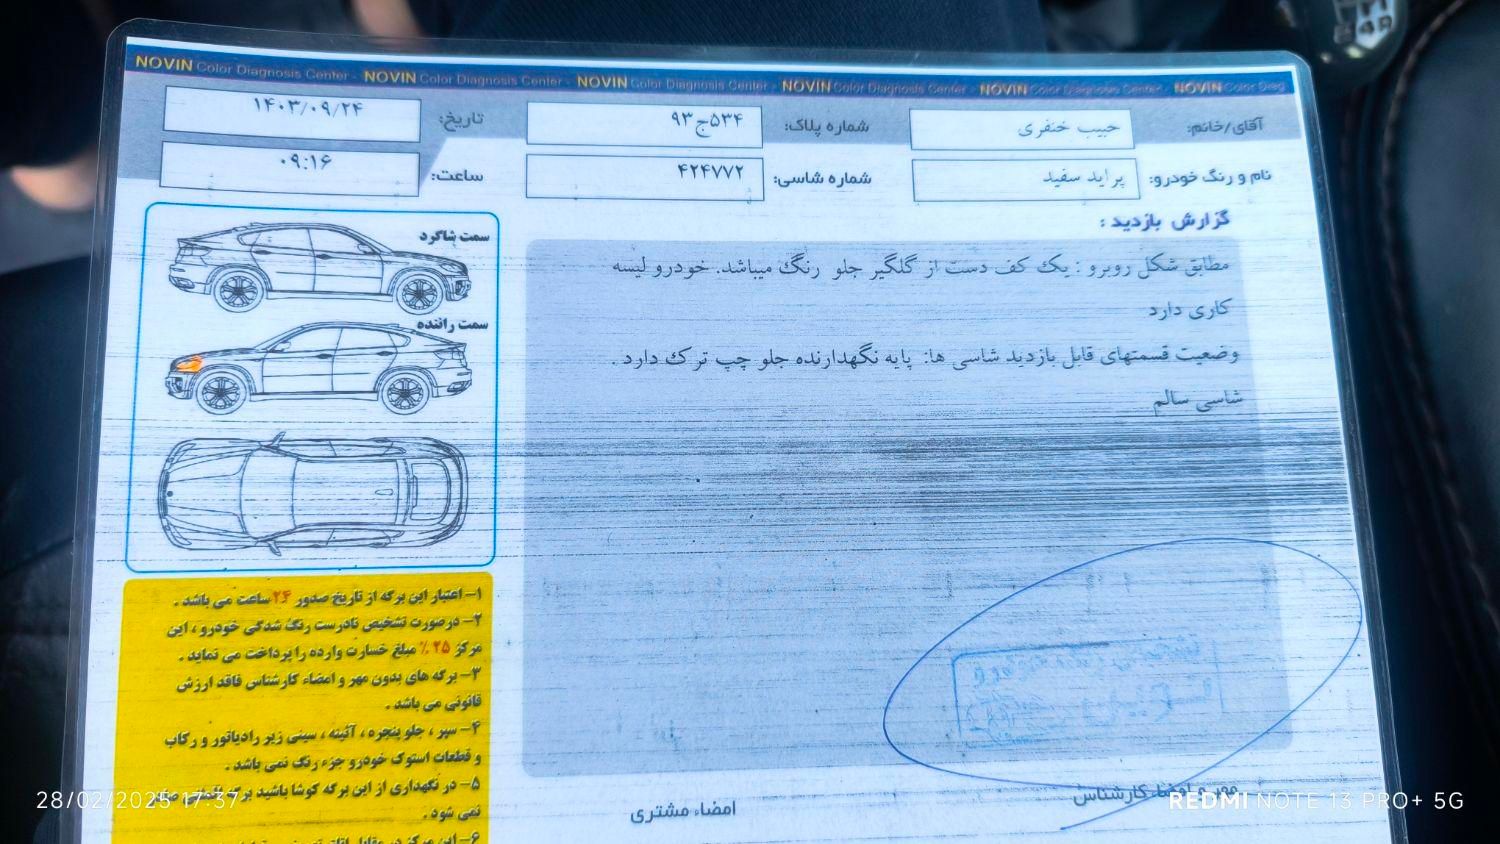 NOVIN Color Diagnosis Center - NOVIN Color Diagnosis Center - NOVIN Color Diagnosis Center - NOVIN Color Diagnosis Center - NOVIN Color Diagnosis Center - NOVIN Color Diag
آقای/خانم: حبیب خنفری شماره پلاک: ۵۳۴ج۹۳ تاریخ: ۱۴۰۳/۰۹/۲۴
نام و رنگ خودرو: پراید سفید شماره شاسی: ۴۲۴۷۷۲ ساعت: ۰۹:۱۶
گزارش بازدید :
مطابق شکل روبرو : یک کف دست از گلگیر جلو رنگ میباشد. خودرو لیسه
کاری دارد
وضعیت قسمتهای قابل بازدید شاسی ها: پایه نگهدارنده جلو چپ ترک دارد .
شاسی سالم
سمت شاگرد
سمت راننده
۱- اعتبار این برگه از تاریخ صدور ۲۴ ساعت می باشد .
۲- درصورت تشخیص نادرست رنگ شدگی خودرو ، این
مرکز ۲۵ ٪ مبلغ خسارت وارده را پرداخت می نماید .
۳- برگه های بدون مهر و امضاء کارشناس فاقد ارزش
قانونی می باشد .
۴- سپر ، جلو پنجره ، آئینه ، سینی زیر رادیاتور و رکاب
و قطعات استوک خودرو جزء رنگ نمی باشد .
۵- در نگهداری از این برگه کوشا باشید برگه
نمی شود .
۶- این مرکز در مقابل
مهر و امضاء کارشناس
امضاء مشتری
28/02/2025 17:37
REDMI NOTE 13 PRO+ 5G